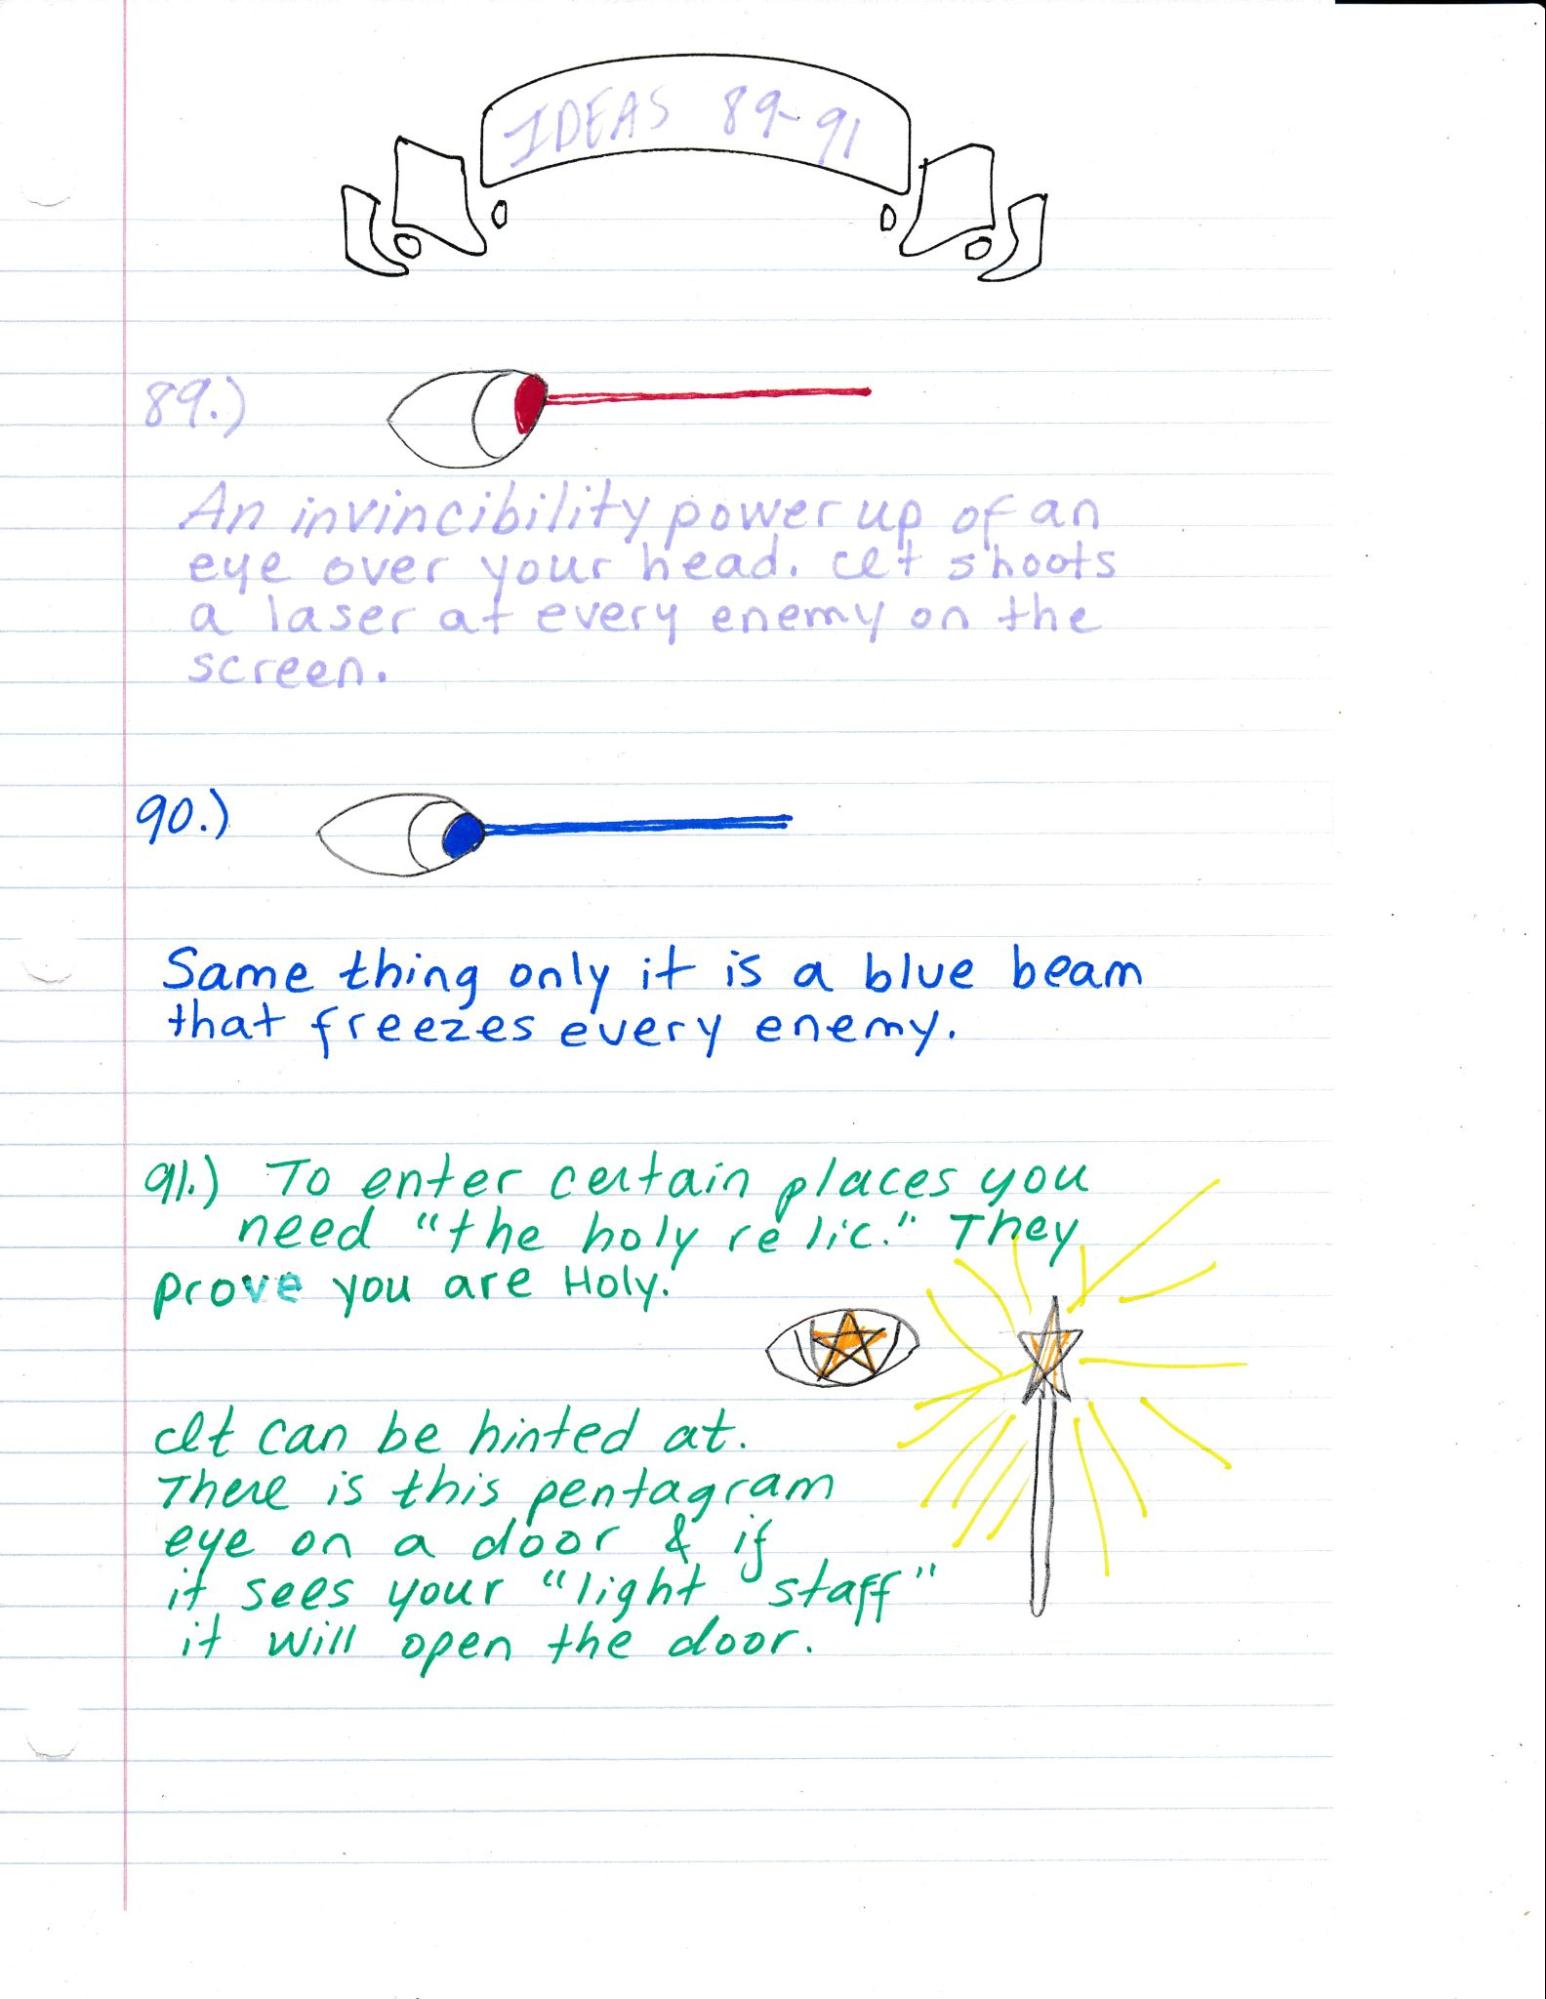 IDEAS 89-91
89.)
An invincibility power up of an
eye over your head. It shoots
a laser at every enemy on the
screen.
90.)
Same thing only it is a blue beam
that freezes every enemy.
91.) To enter certain places you
need "the holy relic." They
prove you are Holy.
It can be hinted at.
There is this pentagram
eye on a door & if
it sees your "light staff"
it will open the door.